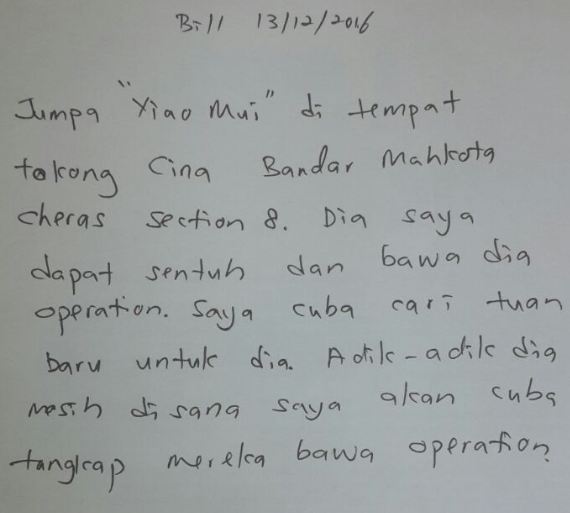 Bill 13/12/2016
Jumpa "Xiao Mui" di tempat
tokong Cina Bandar Mahkota
cheras section 8. Dia saya
dapat sentuh dan bawa dia
operation. Saya cuba cari tuan
baru untuk dia. Adik-adik dia
masih di sana saya akan cuba
tangkap mereka bawa operation.